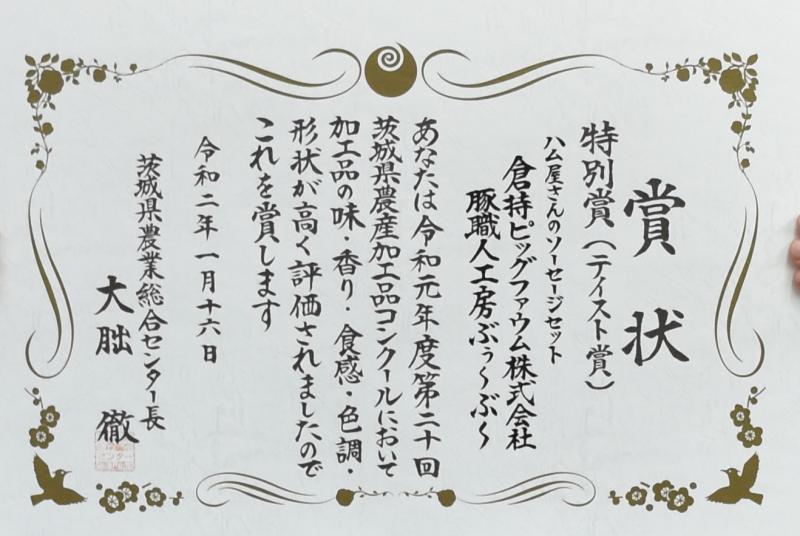 賞状
特別賞（テイスト賞）
ハム屋さんのソーセージセット
倉持ピッグファウム株式会社
豚職人工房ぶぅ〜ぶ〜
あなたは令和元年度第二十回
茨城県農産加工品コンクールにおいて
加工品の味・香り・食感・色調・
形状が高く評価されましたので
これを賞します
令和二年一月十六日
茨城県農業総合センター長
大朏徹